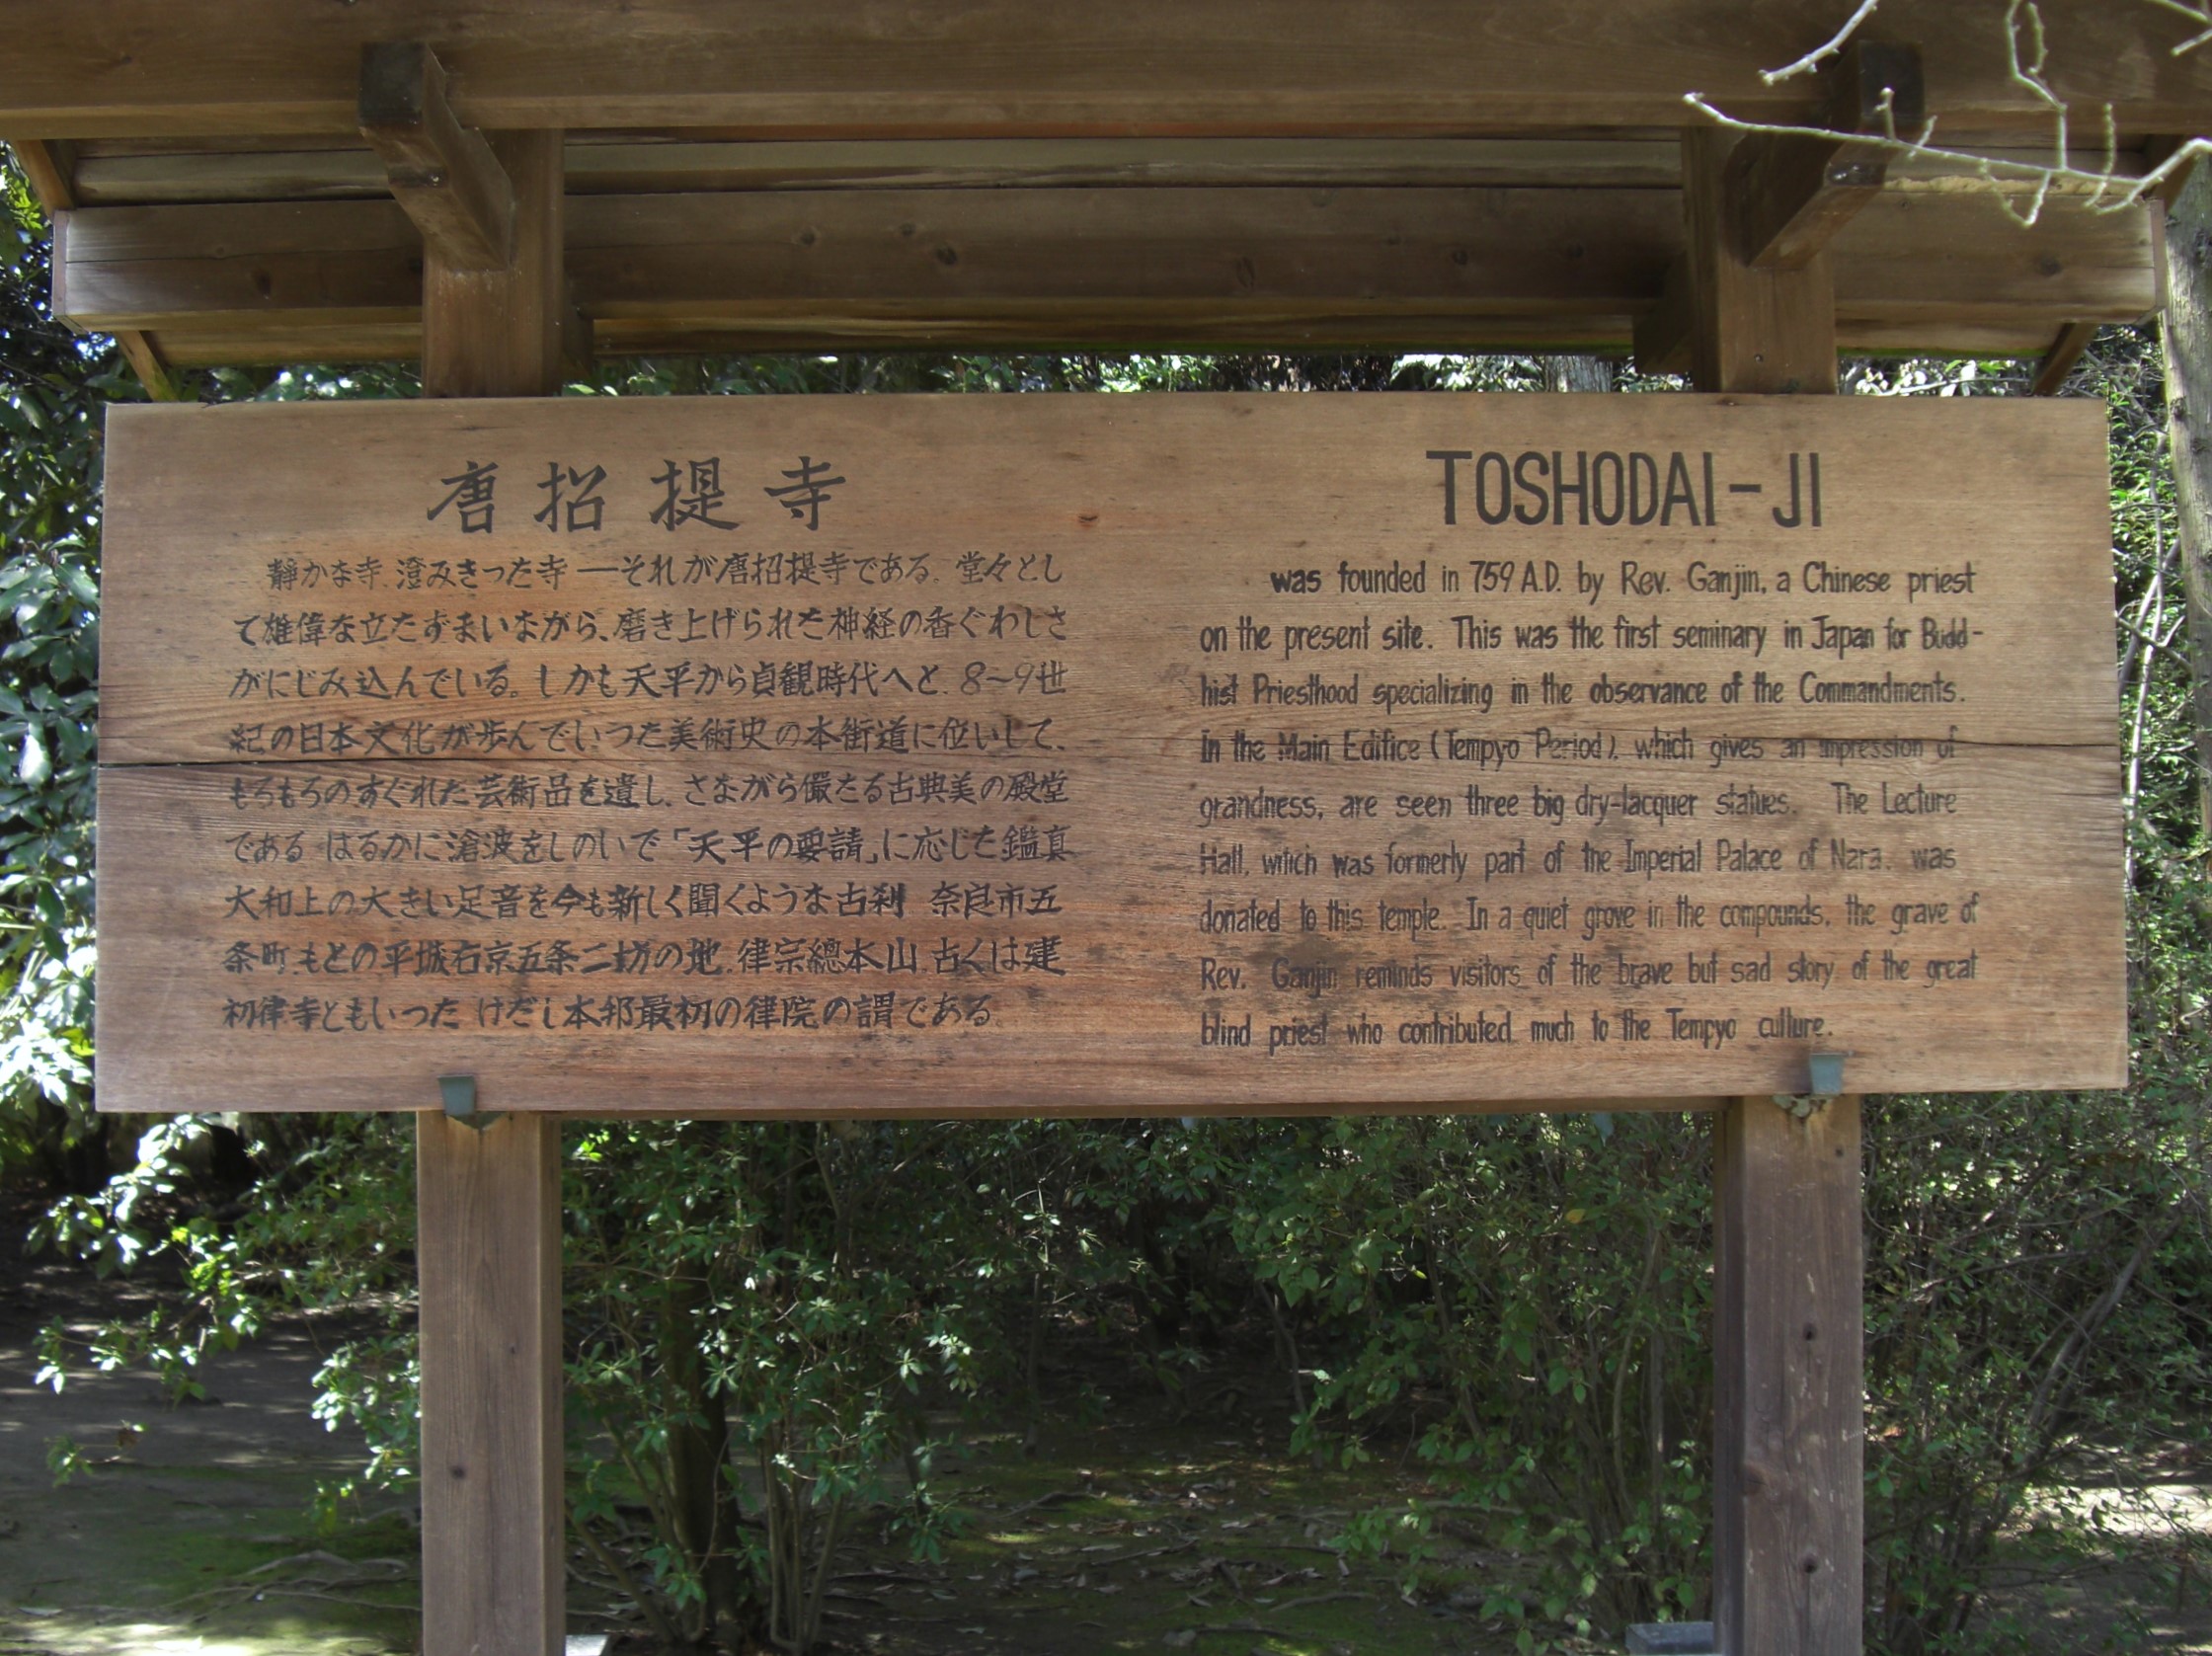 唐招提寺
静かな寺、澄みきった寺―それが唐招提寺である。堂々とし
て雄偉な立たずまいながら、磨き上げられた神経の香ぐわしさ
がにじみ込んでいる。しかも天平から貞観時代へと、8〜9世
紀の日本文化が歩んでいった美術史の本街道に位いして、
もろもろのすぐれた芸術品を遺し、さながら儼たる古典美の殿堂
である はるかに滄波をしのいで「天平の要請」に応じた鑑真
大和上の大きい足音を今も新しく聞くような古刹 奈良市五
条町、もとの平城右京五条二坊の地、律宗總本山、古くは建
初律寺ともいった けだし本邦最初の律院の謂である
TOSHODAI-JI
was founded in 759 A.D. by Rev. Ganjin, a Chinese priest
on the present site. This was the first seminary in Japan for Budd-
hist Priesthood specializing in the observance of the Commandments.
In the Main Edifice (Tempyo Period), which gives an impression of
grandness, are seen three big dry-lacquer statues. The Lecture
Hall, which was formerly part of the Imperial Palace of Nara, was
donated to this temple. In a quiet grove in the compounds, the grave of
Rev. Ganjin reminds visitors of the brave but sad story of the great
blind priest who contributed much to the Tempyo culture.